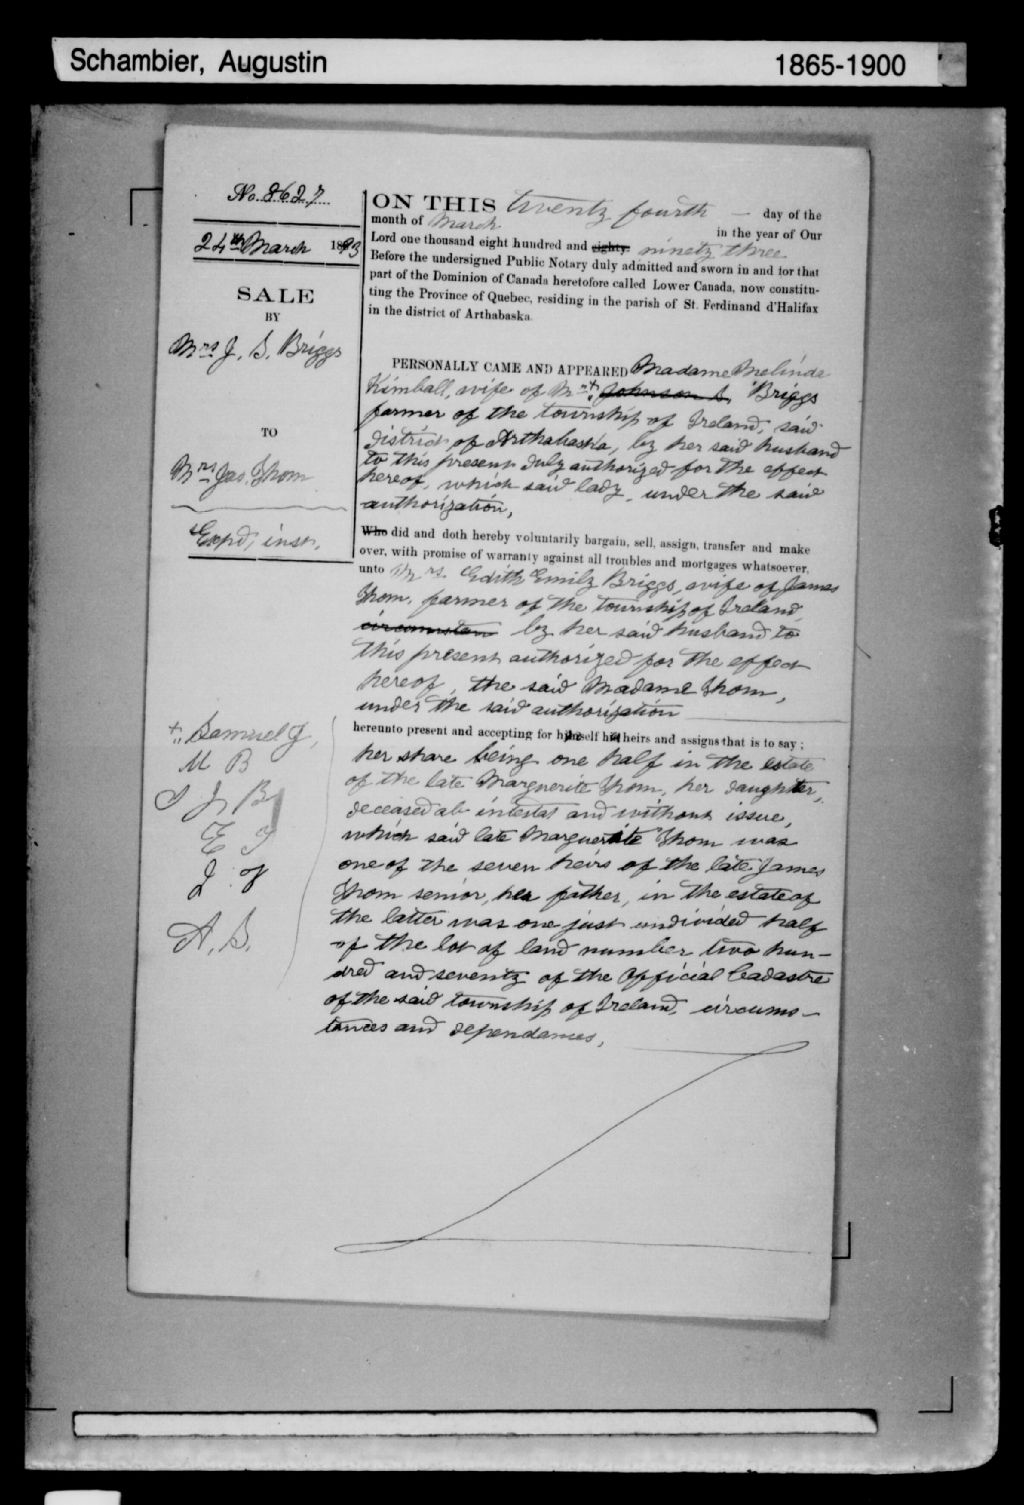 Schambier, Augustin
1865-1900
No. 8627
24th March 1893
SALE
BY
Mrs J. S. Briggs
TO
Mrs Jas. Thom
Expd, inst.
ON THIS twenty fourth — day of the
month of March in the year of Our
Lord one thousand eight hundred and eighty. ninety three
Before the undersigned Public Notary duly admitted and sworn in and for that
part of the Dominion of Canada heretofore called Lower Canada, now constitu-
ting the Province of Quebec, residing in the parish of St. Ferdinand d'Halifax
in the district of Arthabaska.
PERSONALLY CAME AND APPEARED Madame Melinda
Kimball, wife of Mr Johnson S. Briggs
farmer of the township of Ireland, said
district of Arthabaska, by her said husband
to this present duly authorized for the effect
hereof, which said lady, under the said
authorization,
Who did and doth hereby voluntarily bargain, sell, assign, transfer and make
over, with promise of warranty against all troubles and mortgages whatsoever,
unto Mrs. Edith Emily Briggs, wife of James
Thom, farmer of the township of Ireland
circumstan by her said husband to
this present authorized for the effect
hereof, the said Madame Thom,
under the said authorization
hereunto present and accepting for himself his heirs and assigns that is to say;
her share being one half in the estate
of the late Marguerite Thom, her daughter,
deceased ab intestat and without issue,
which said late Marguerite Thom was
one of the seven heirs of the late James
Thom senior, her father, in the estate of
the latter was one just undivided half
of the lot of land number two hun-
dred and seventy of the Official Cadastre
of the said township of Ireland, circums-
tances and dependances,
Samuel J,
M B
J B
E T
J T
A. S.